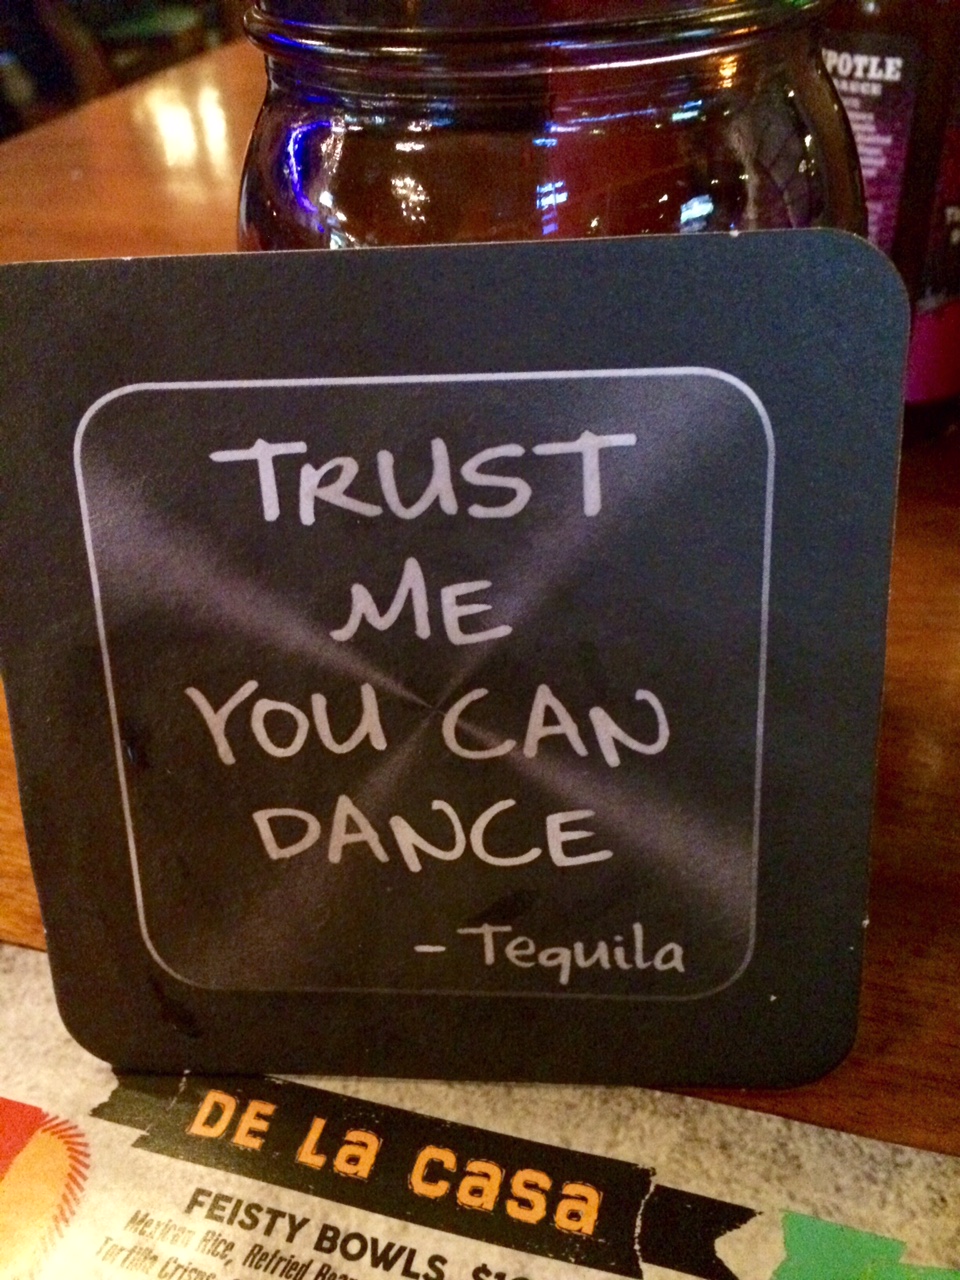 POTLE
TRUST
ME
YOU CAN
DANCE
- Tequila
DE La Casa
FEISTY BOWLS
Mexican Rice, Refried
Tortilla